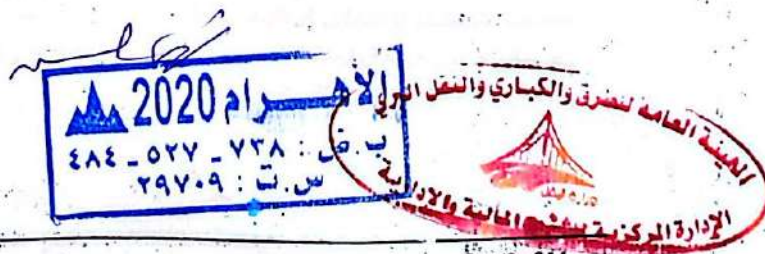 الأهرام 2020
ب. ض : ٧٣٨ - ٥٢٧ - ٤٨٤
س. ت : ٢٩٧٠٩
الهيئة العامة للطرق والكباري والنقل البري
الإدارة المركزية للشئون المالية والإدارية